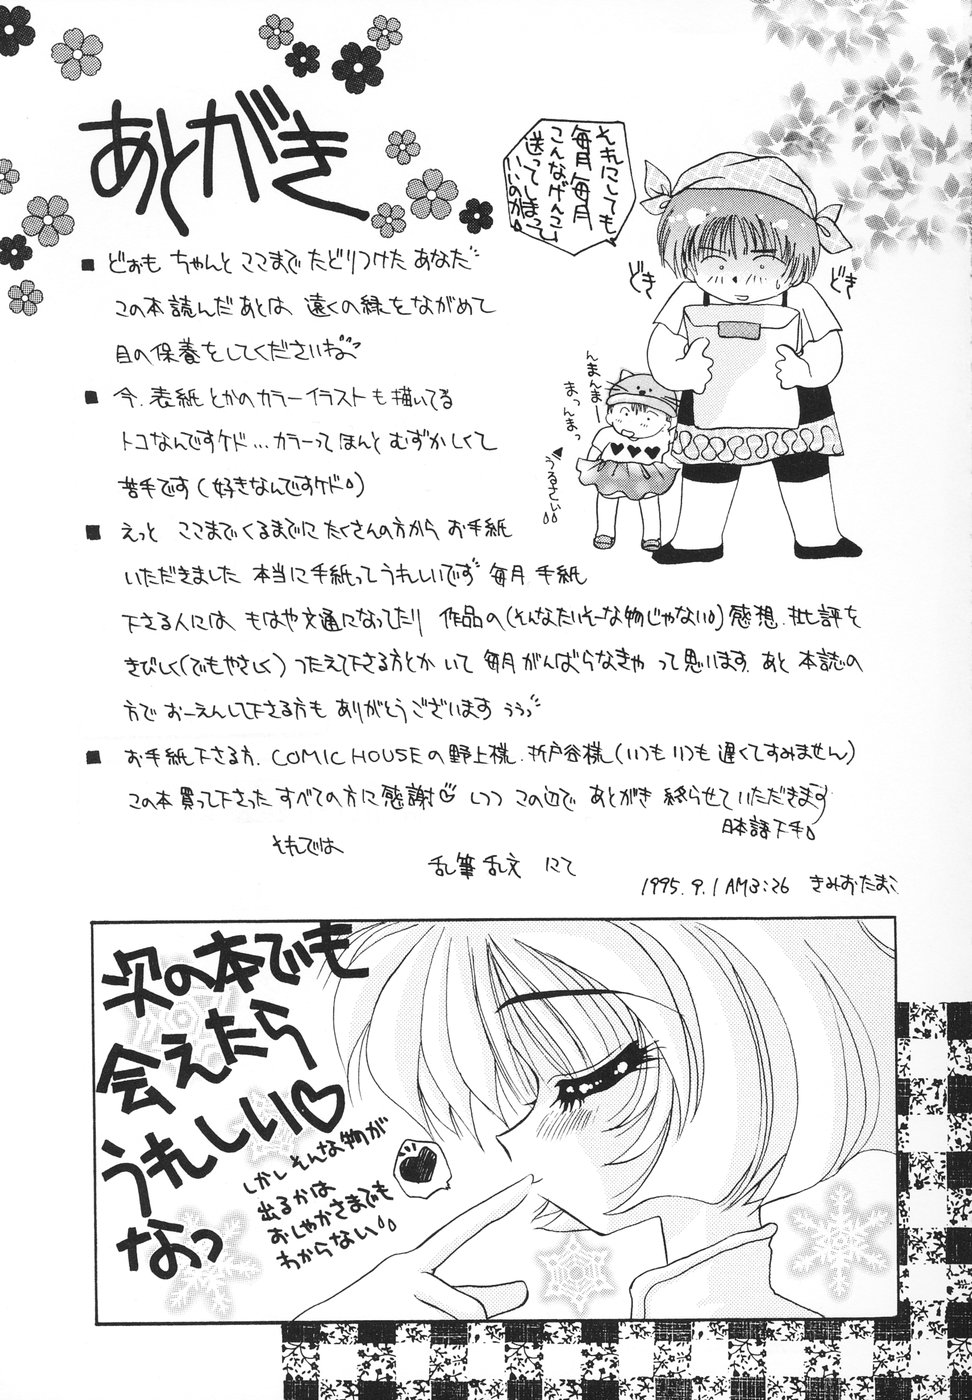 あとがき
それにしても
毎月毎月
こんなげんこう
送ってしまって
いいのか
どき
どき
んまんまー
まっんまっ
うるさい
■ どぉも ちゃんと ここまで たどりつけた あなた
この本読んだあとは、遠くの緑をながめて
目の保養をしてくださいね
■ 今、表紙とかのカラーイラストも描いてる
トコなんですケド…カラーってほんと むずかしくて
苦手です(好きなんですケド)
■ えっと ここまでくるまでに たくさんの方から お手紙
いただきました 本当に手紙ってうれしいです 毎月 手紙
下さる人には、もはや文通になってたり 作品の(そんなたいそーな物じゃない)感想、批評を
きびしく(でもやさしく)つたえて下さる方とか いて 毎月がんばらなきゃ って思います あと 本誌の
方で おーえんして下さる方も ありがとうございます ううっ
■ お手紙下さる方、COMIC HOUSEの野上様、折戸谷様(いつも いつも 遅くてすみません)
この本買って下さった すべての方に感謝♡しつつ この辺で あとがき 終らせていただきます
日本語下手
それでは
乱筆乱文 にて
1995.9.1 AM3:26 きみおたまこ
次の本でも
会えたら
うれしい♡
なっ
しかし そんな物が
出るかは
おしゃかさまでも
わからない